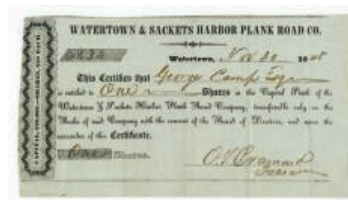 WATERTOWN & SACKETS HARBOR PLANK ROAD CO.
Watertown, Nov 20 18
This Certifies that George Camp Esq
is entitled to One Shares in the Capital Stock of the
Watertown & Sackets Harbor Plank Road Company, transferable only on the
Books of said Company with the consent of the Board of Directors, and upon the
surrender of this Certificate.
One Shares.